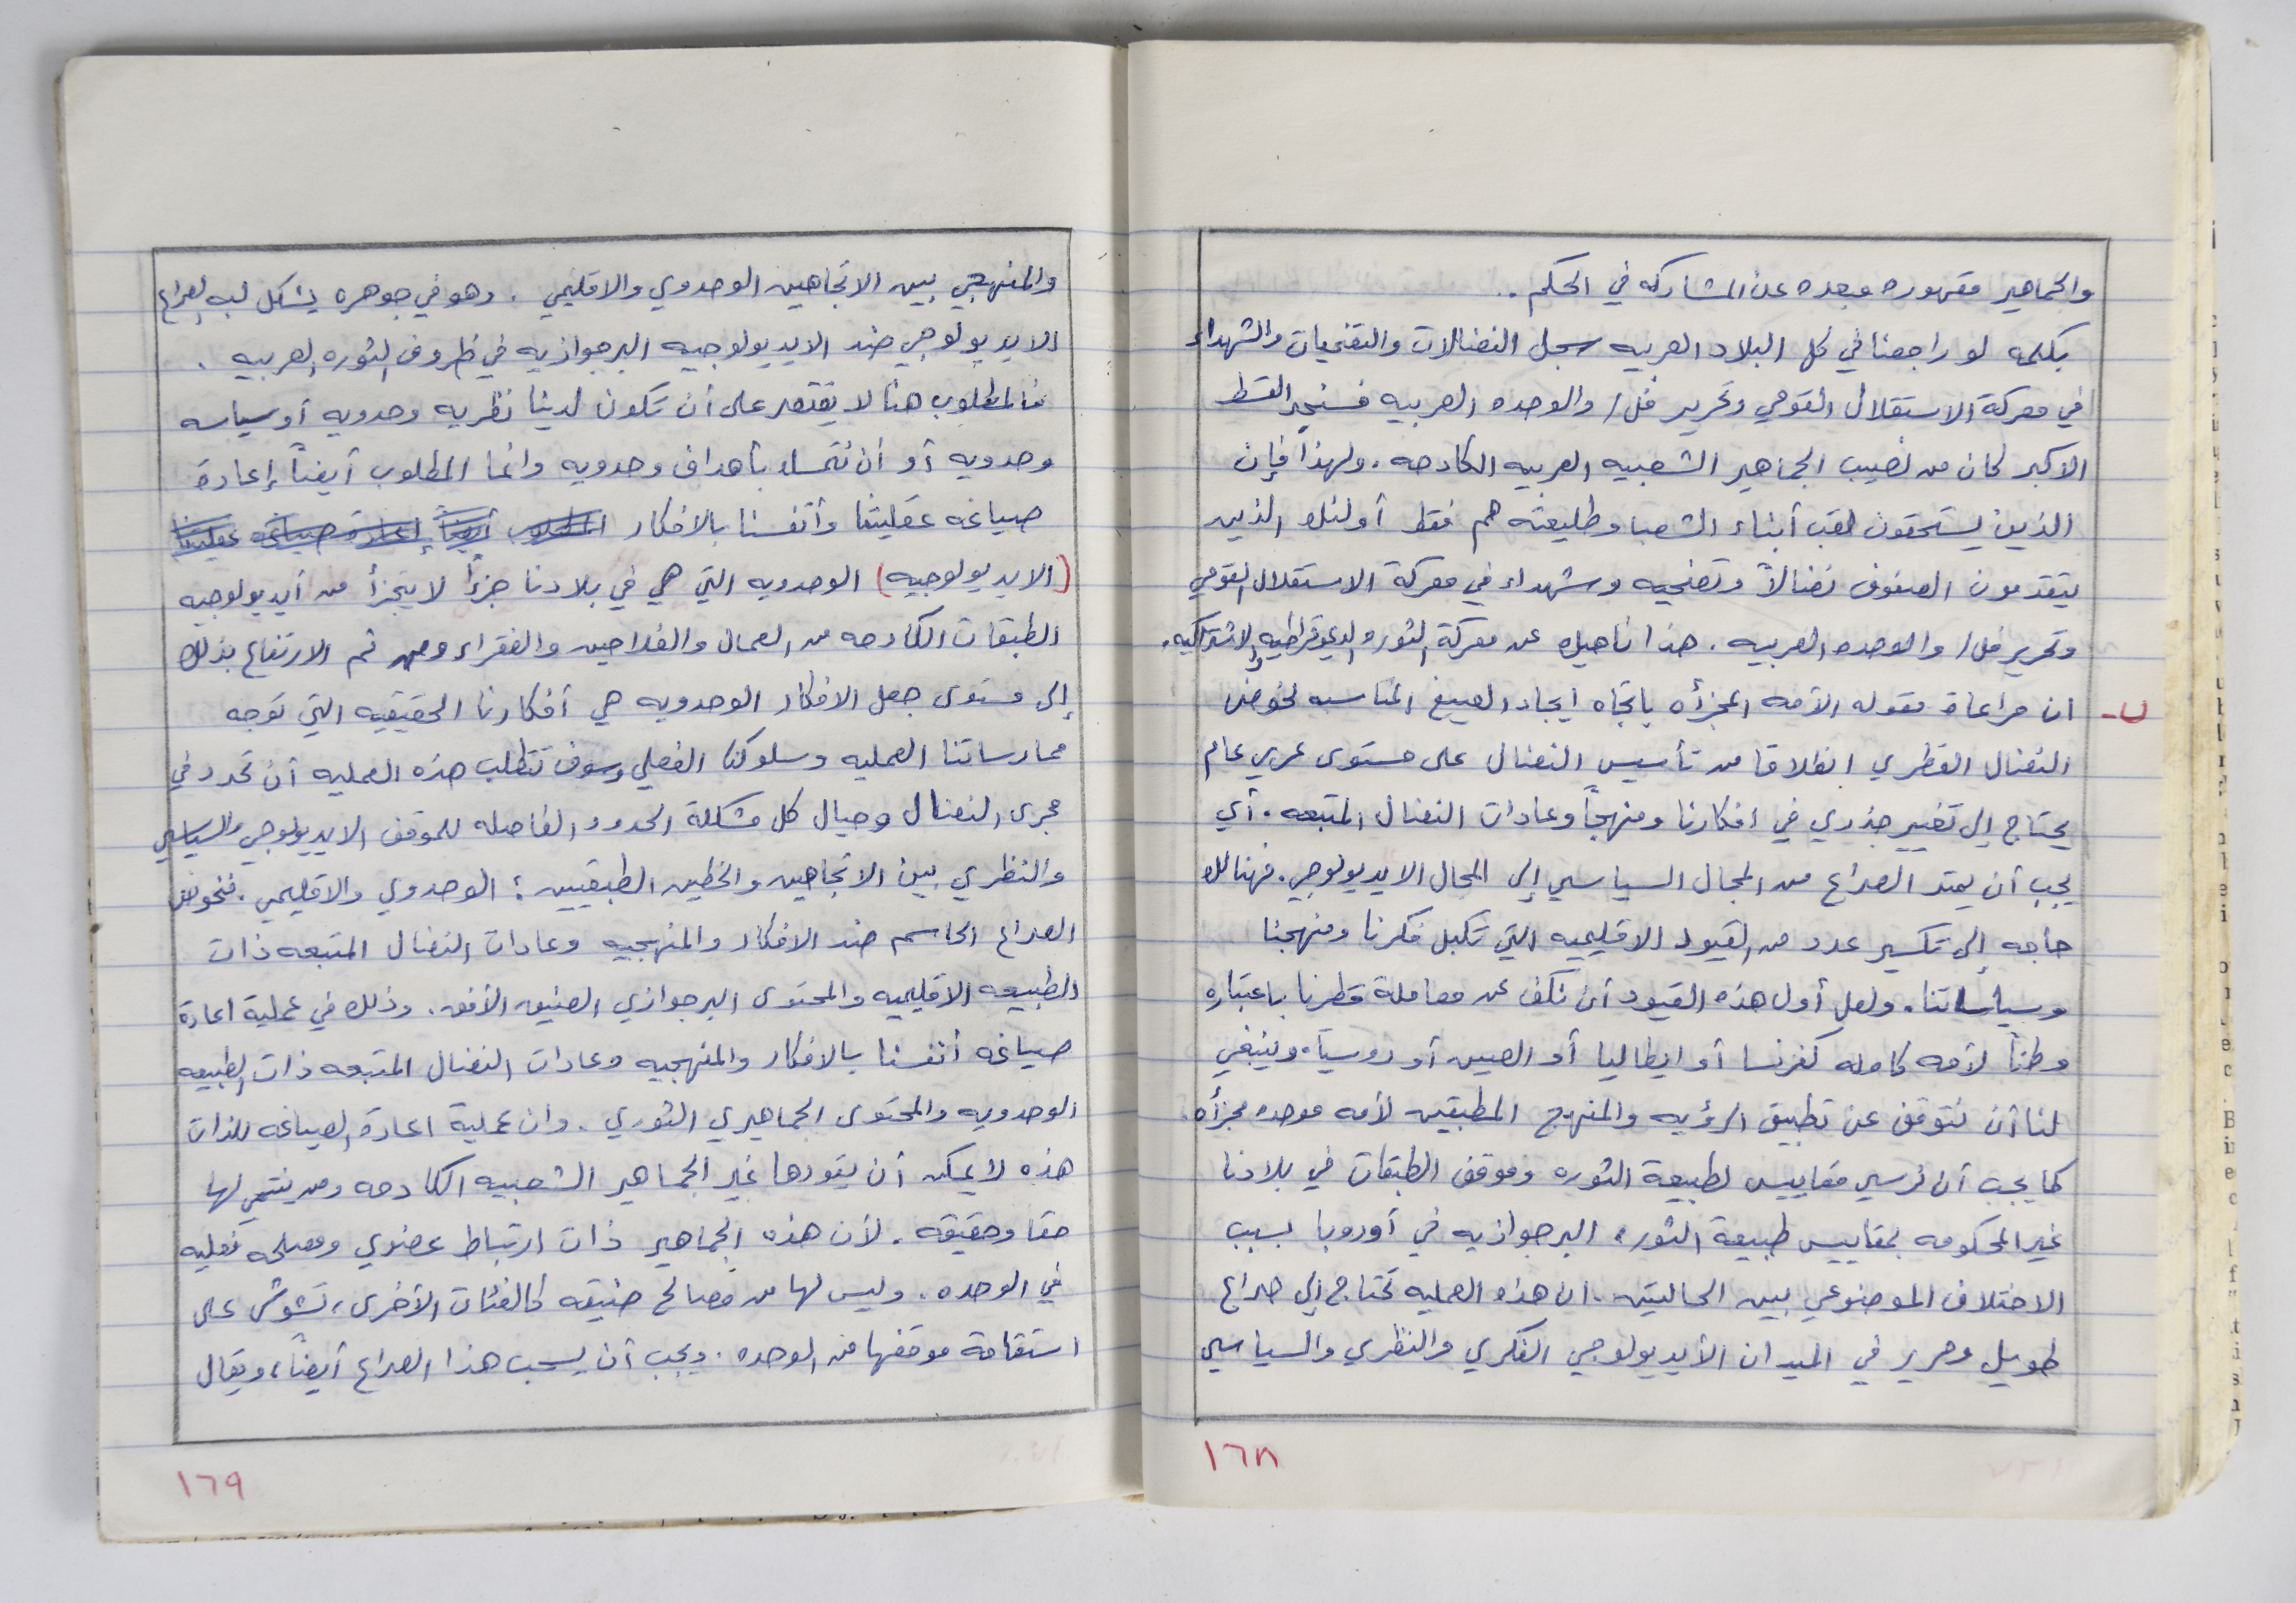 والجماهير مقهوره مبعده عن المشاركه في الحكم..
بكلمه لو راجعنا في كل البلاد العربيه سجل النضالات والتضحيات والشهداء
في معركة الاستقلال القومي وتحرير فل/ والوحده العربيه فسنجد القسط
الاكبر كان من نصيب الجماهير الشعبيه العربيه الكادحه. ولهذا فإن
الذين يستحقون لقب أبناء الشعب وطليعته هم فقط أولئك الذين
يتقدمون الصفوف نضالاً وتضحيه وشهداء في معركة الاستقلال القومي
وتحرير فل/ والوحده العربيه. هذا ناهيك عن معركة الثوره الديموقراطيه والاشتراكيه.
ب- ان مراعاة مقوله الأمه المجزأه باتجاه ايجاد الصيغ المناسبه لخوض
النضال القطري انطلاقا من تأسيس النضال على مستوى عربي عام
يحتاج إلى تغيير جذري في افكارنا ومنهجاً وعادات النضال المتبعه. أي
يجب أن يمتد الصراع من المجال السياسي إلى المجال الايديولوجي. فهنالك
حاجه إلى تكسير عدد من القيود الاقليميه التي تكبل فكرنا ومنهجنا
وسياساتنا. ولعل أول هذه القيود أن نكف عن معاملة قطرنا باعتباره
وطناً لأمه كامله كفرنسا أو ايطاليا أو الصين أو روسيا. وينبغي
لنا أن نتوقف عن تطبيق الرؤيه والمنهج المطبقين لأمه موحده مجزأه.
كما يجب أن نرسي مقاييس لطبيعة الثوره وموقف الطبقات في بلادنا
غير المحكومه بمقاييس طبيعة الثوره البرجوازيه في أوروبا بسبب
الاختلاف الموضوعي بين الحالتين. ان هذه العمليه تحتاج إلى صراع
طويل ومرير في الميدان الأيديولوجي الفكري والنظري والسياسي
١٦٨
والمنهجي بين الاتجاهين الوحدوي والاقليمي. وهو في جوهره يشكل لب الصراع
الايديولوجي ضد الايديولوجيه البرجوازيه في ظروف الثوره العربيه.
فالمطلوب هنا لا يقتصر على أن تكون لدينا نظريه وحدويه أو سياسه
وحدويه أو أن نتمسك بأهداف وحدويه وانما المطلوب أيضاً إعادة
صياغه عقليتنا وأنفسنا بالافكار المطلوب أيضاً إعادة صياغه عقليتنا
(الايديولوجيه) الوحدويه التي هي في بلادنا جزءاً لا يتجزأ من أيديولوجيه
الطبقات الكادحه من العمال والفلاحين والفقراء ومن ثم الارتفاع بذلك
إلى مستوى جعل الافكار الوحدويه هي أفكارنا الحقيقيه التي توجه
ممارساتنا العمليه وسلوكنا الفعلي وسوف تتطلب هذه العمليه أن نحدد في
مجرى النضال وحيال كل مشكلة الحدود الفاصله للموقف الايديولوجي والسياسي
والنظري بين الاتجاهين والخطين الطبقيين: الوحدوي والاقليمي. فنخوض
الصراع الحاسم ضد الافكار والمنهجيه وعادات النضال المتبعه ذات
الطبيعه الاقليميه والمحتوى البرجوازي الضيق الأفق. وذلك في عملية اعادة
صياغه أنفسنا بالافكار والمنهجيه وعادات النضال المتبعه ذات الطبيعه
الوحدويه والمحتوى الجماهيري الثوري. وان عملية اعادة الصياغه للذات
هذه لا يمكن أن يقودها غير الجماهير الشعبيه الكادحه ومن ينتمي لها
حقا وحقيقه. لأن هذه الجماهير ذات ارتباط عضوي ومصلحه فعليه
في الوحده. وليس لها من مصالح ضيقه كالفئات الأخرى، تشوش على
استقامة موقفها من الوحده. ويجب أن يسحب هذا الصراع أيضاً، ويقال
١٦٩